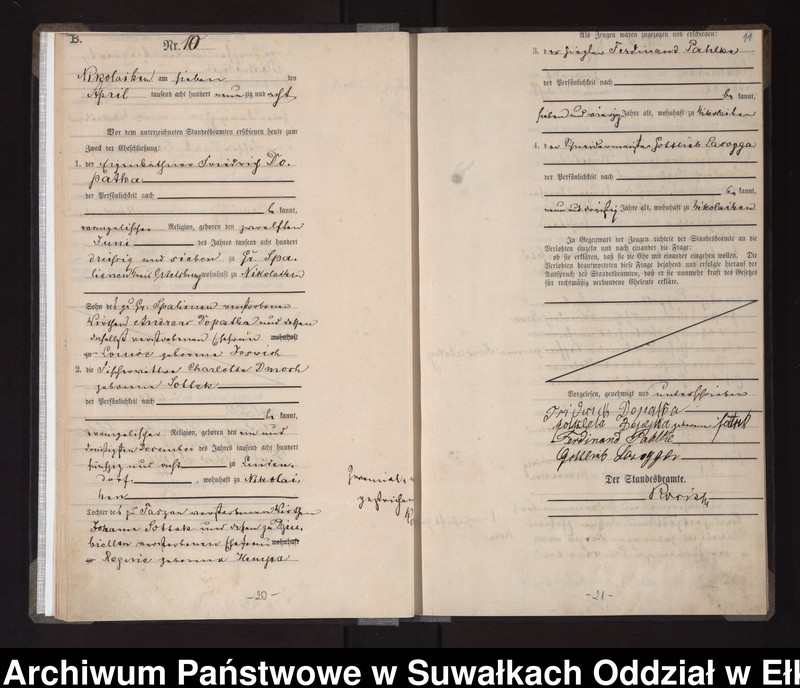 B.
Nr. 10
Nikolaiken am sieben ten
April tausend acht hundert neunzig und acht
Vor dem unterzeichneten Standesbeamten erschienen heute zum
Zweck der Eheschließung:
1. der Eigenkäthner Friedrich Do-
patka
der Persönlichkeit nach
be kannt,
evangelischer Religion, geboren den zwölften
Juni des Jahres tausend acht hundert
dreißig und sieben zu Gr. Spa-
lienen wohnhaft zu Nikolaiken
Sohn des zu Gr. Spalienen verstorbenen
Wirthen Andreas Dopatka und dessen
daselbst verstorbenen Ehefrau wohnhaft
zu Louise geborene
2. die Fischerwittwe Charlotte Dmoch
geborene Sottek
der Persönlichkeit nach
be kannt,
evangelischer Religion, geboren den ein und
dreißigsten Dezember des Jahres tausend acht hundert
fünfzig und acht zu Linden-
dorf, wohnhaft zu Nikolai-
ken
Tochter des zu verstorbenen Wirthen
Johann Sottek und dessen zu
verstorbenen Ehefrau wohnhaft
zu Regine geborene Kempa
gestrichen
-20-
11
Als Zeugen waren zugezogen und erschienen:
3. der Ziegler Ferdinand Pahlke
der Persönlichkeit nach
be kannt,
sieben und vierzig Jahre alt, wohnhaft zu Nikolaiken
4. der Schneidermeister Gottlieb
der Persönlichkeit nach
be kannt,
neun und dreißig Jahre alt, wohnhaft zu Nikolaiken
In Gegenwart der Zeugen richtete der Standesbeamte an die
Verlobten einzeln und nach einander die Frage:
ob sie erklären, daß sie die Ehe mit einander eingehen wollen. Die
Verlobten beantworteten diese Frage bejahend und erfolgte hierauf der
Ausspruch des Standesbeamten, daß er sie nunmehr kraft des Gesetzes
für rechtmäßig verbundene Eheleute erkläre.
Vorgelesen, genehmigt und unterschrieben
Fridrich Dopatka
geborene
Ferdinand Pahlke
Gottlieb
Der Standesbeamte.
-21-
Archiwum Państwowe w Suwałkach Oddział w Ełk